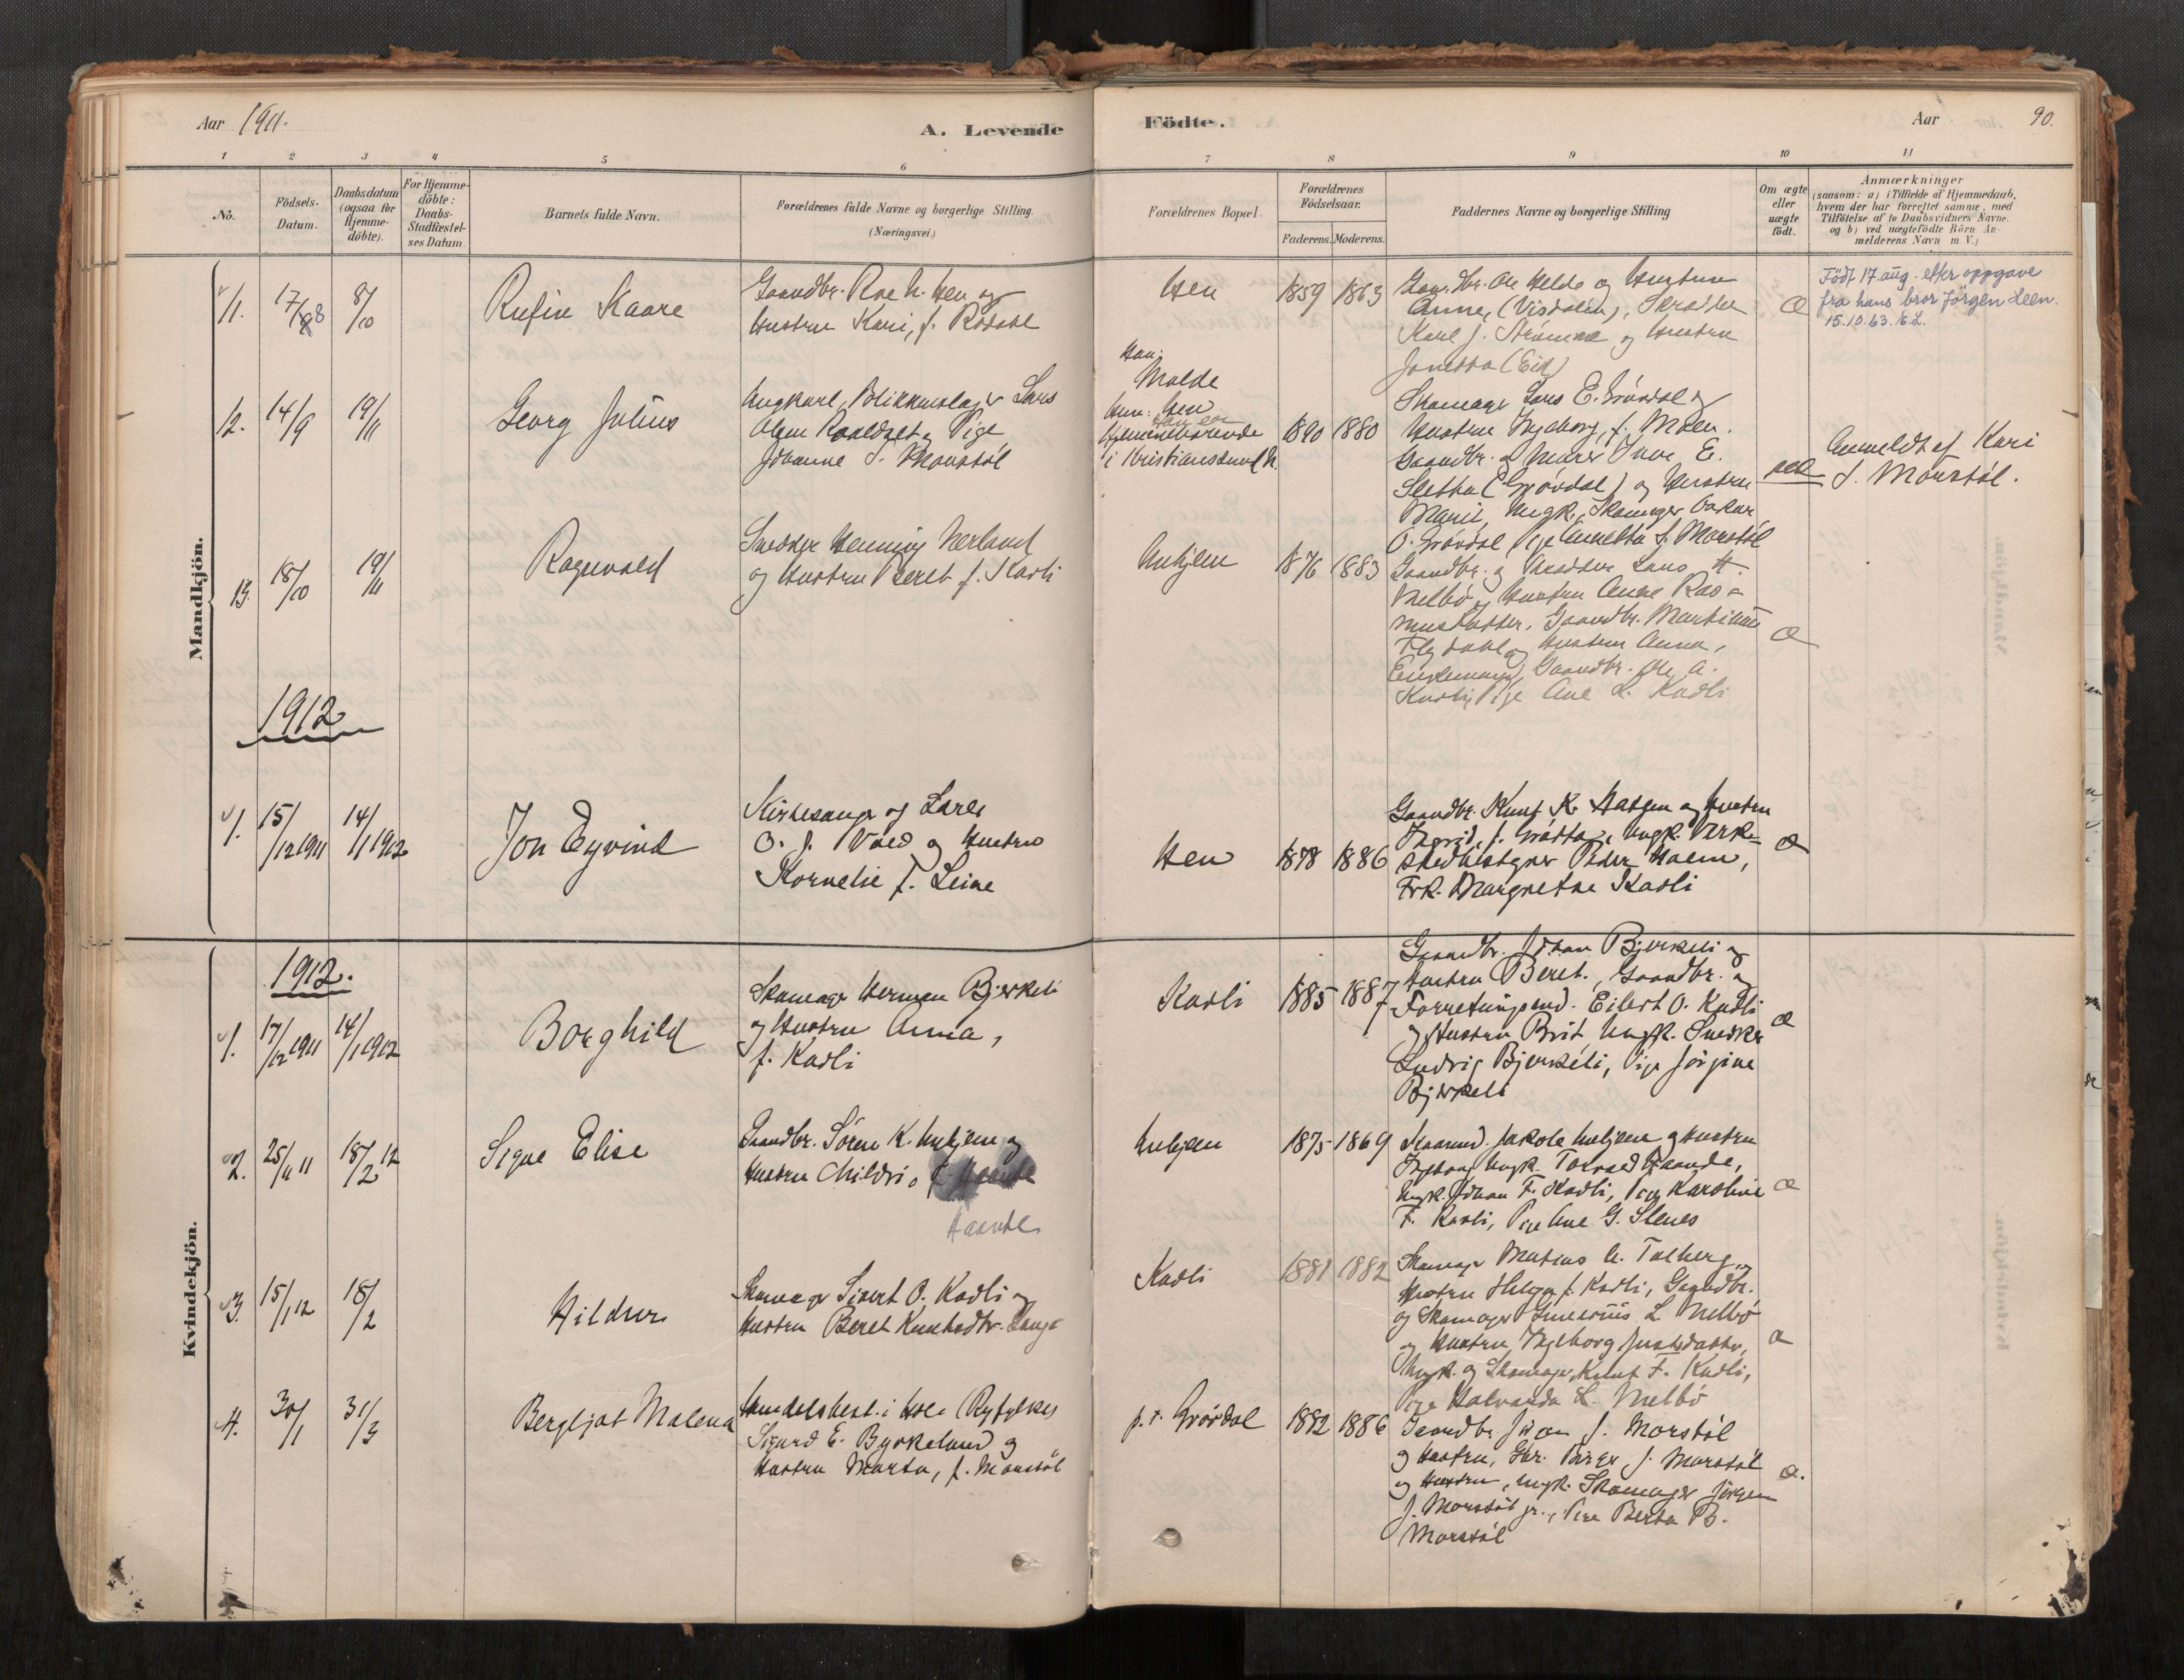 Aar 1911.
A. Levende
Födte.
Aar
90.
1 2 3 4 5 6 7 8 9 10 11
No.
Födsels-
Datum.
Daabsdatum
(ogsaa for
Hjemme-
döbte).
For Hjemme-
döbte:
Daabs-
Stadfæstel-
ses Datum.
Barnets fulde Navn.
Forældrenes fulde Navne og borgerlige Stilling.
(Næringsvei.)
Forældrenes Bopæl.
Forældrenes
Födselsaar.
Faderens. Moderens.
Faddernes Navne og borgerlige Stilling
Om ægte
eller
uægte
födt.
Anmærkninger
(saasom: a) i Tilfælde af Hjemmedaab,
hvem der har forrettet samme, med
Tilföielse af to Daabsvidners Navne.
og b) ved uægtefödte Börn An-
melderens Navn m. V.)
Mandkjön.
11. 17/8 8/10
Rufin Kaare
Gaardbr. Roe N. Hen og
Hustru Kari, f. Rödahl
Hen
1859 1863
Gaardbr. Ole Helde og Hustru
Anne, (Visdalen), Skrædder
Karl J. Strömme og Hustru
Jonetta (Eid)
Æ
Födt 17. aug. efter oppgave
fra hans bror Jörgen Heen.
15.10.63. E.L.
12. 14/9 19/11
Georg Julius
Ungkarl, Blikkenslager Lars
Olsen Roaldset og Pige
Johanne J. Monstöl
Han:
Molde
Hun: Hen
Hjemmehörende
i Kristiansund N.
1890 1880
Skomager Lars E. Grövdal og
Hustru Ingeborg, f. Moen.
Gaardbr. og Murer Iver E.
Sletta (Grövdal) og Hustru
Marie, Ungk. Skomager Oskar
O. Grövdal, Pige Annetta J. Monstöl
uæ
Anmeldt af Kari
J. Monstöl.
13. 18/10 19/11
Ragnvald
Snedker Henning Nerland
og Hustru Beret f. Kavli
Unhjem
1876 1883
Gaardbr. og Skrædder Lars H.
Nelbö og Hustru Anne Ras-
musdatter, Gaardbr. Martinus
Flydahl og Hustru Anna,
Enkemand, Gaardbr. Ole A.
Kavli, Pige Ane L. Kavli
Æ
1912
1. 15/12 1911 14/1 1912
Jon Eyvind
Kirkesanger og Lærer
O. J. Voll og Hustru
Kornelie f. Leine
Hen
1878 1886
Gaardbr. Knut K. Hatgen og Hustru
Ingrid, f. Grötta, Ungk. Verk-
stedbestyrer Peder Hoem,
Frk. Margrethe Kavli
Æ
Kvindekjön.
1912.
1. 17/12 1911 14/1 1912
Borghild
Skomager Herman Bjerkeli
og Hustru Anna,
f. Kavli
Kavli
1885 1887
Gaardbr. Johan Bjerkeli og
Hustru Beret, Gaardbr. og
Forretningsmd. Eilert O. Kavli
og Hustru Brit, Ungk. Snedker
Ludvig Bjerkeli, Pige Jörgine
Bjerkeli
Æ
2. 25/11 11 18/2 12
Signe Elise
Gaardbr. Sören K. Unhjem og
Hustru Mildri,
Haande
Unhjem
1875 1869
Kaarmd. Jakob Unhjem og Hustru
Ingeborg, Ungk. Torvald Haande,
Ungk. Johan F. Kavli, Pige Karoline
F. Kavli, Pige Ane G. Stenes
Æ
3. 15/1 12 18/2
Hildur
Skomager Sivert O. Kavli og
Hustru Beret Knutsdtr.
Kavli
1881 1882
Skomager Matias A. Talberg og
Hustru Helga f. Kavli, Gaardbr.
og Skomager L. Nelbö
og Hustru Ingeborg
Ungk. og Skomager Knut F. Kavli,
Pige Halvarda L. Nelbö
Æ
4. 30/1 31/3
Bergljot Malena
Handelsbest. i Hole (Ryfylke)
Sigurd E. Byrkeland og
Hustru Marta, f. Monstöl
p.t. Grövdal
1882 1886
Gaardbr. Johan J. Monstöl
og Hustru, Gbr. Birger J. Monstöl
og Hustru, Ungk. Skomager Jörgen
J. Monstöl jr., Pige Berta B.
Monstöl
Æ.